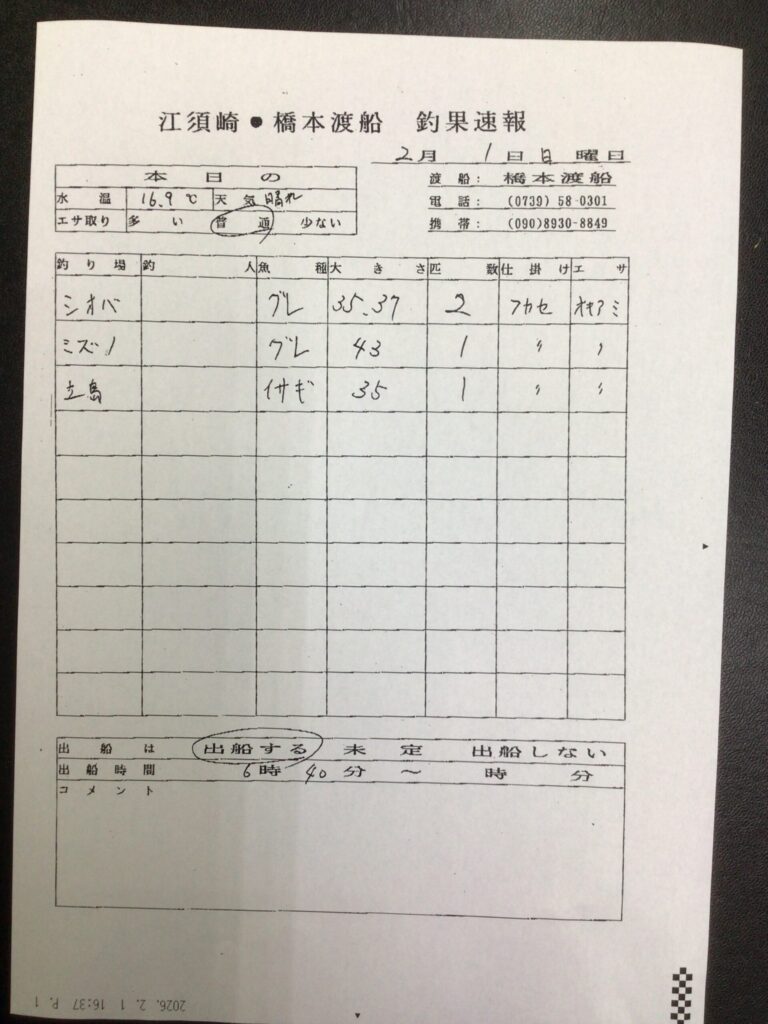 江須崎●橋本渡船 釣果速報
2月 1日 日 曜日
本日の
渡船: 橋本渡船
水温 16.9℃ 天気 晴れ
電話: (0739) 58-0301
エサ取り 多い 普通 少ない
携帯: (090)8930-8849
釣り場 釣人 魚種 大きさ 匹数 仕掛け エサ
シオバ グレ 35-37 2 フカセ オキアミ
ミズノ グレ 43 1 〃 〃
立島 イサギ 35 1 〃 〃
出船は 出船する 未定 出船しない
出船時間 6時 40分 ～ 時 分
コメント
2026. 2. 1 16:37 P. 1